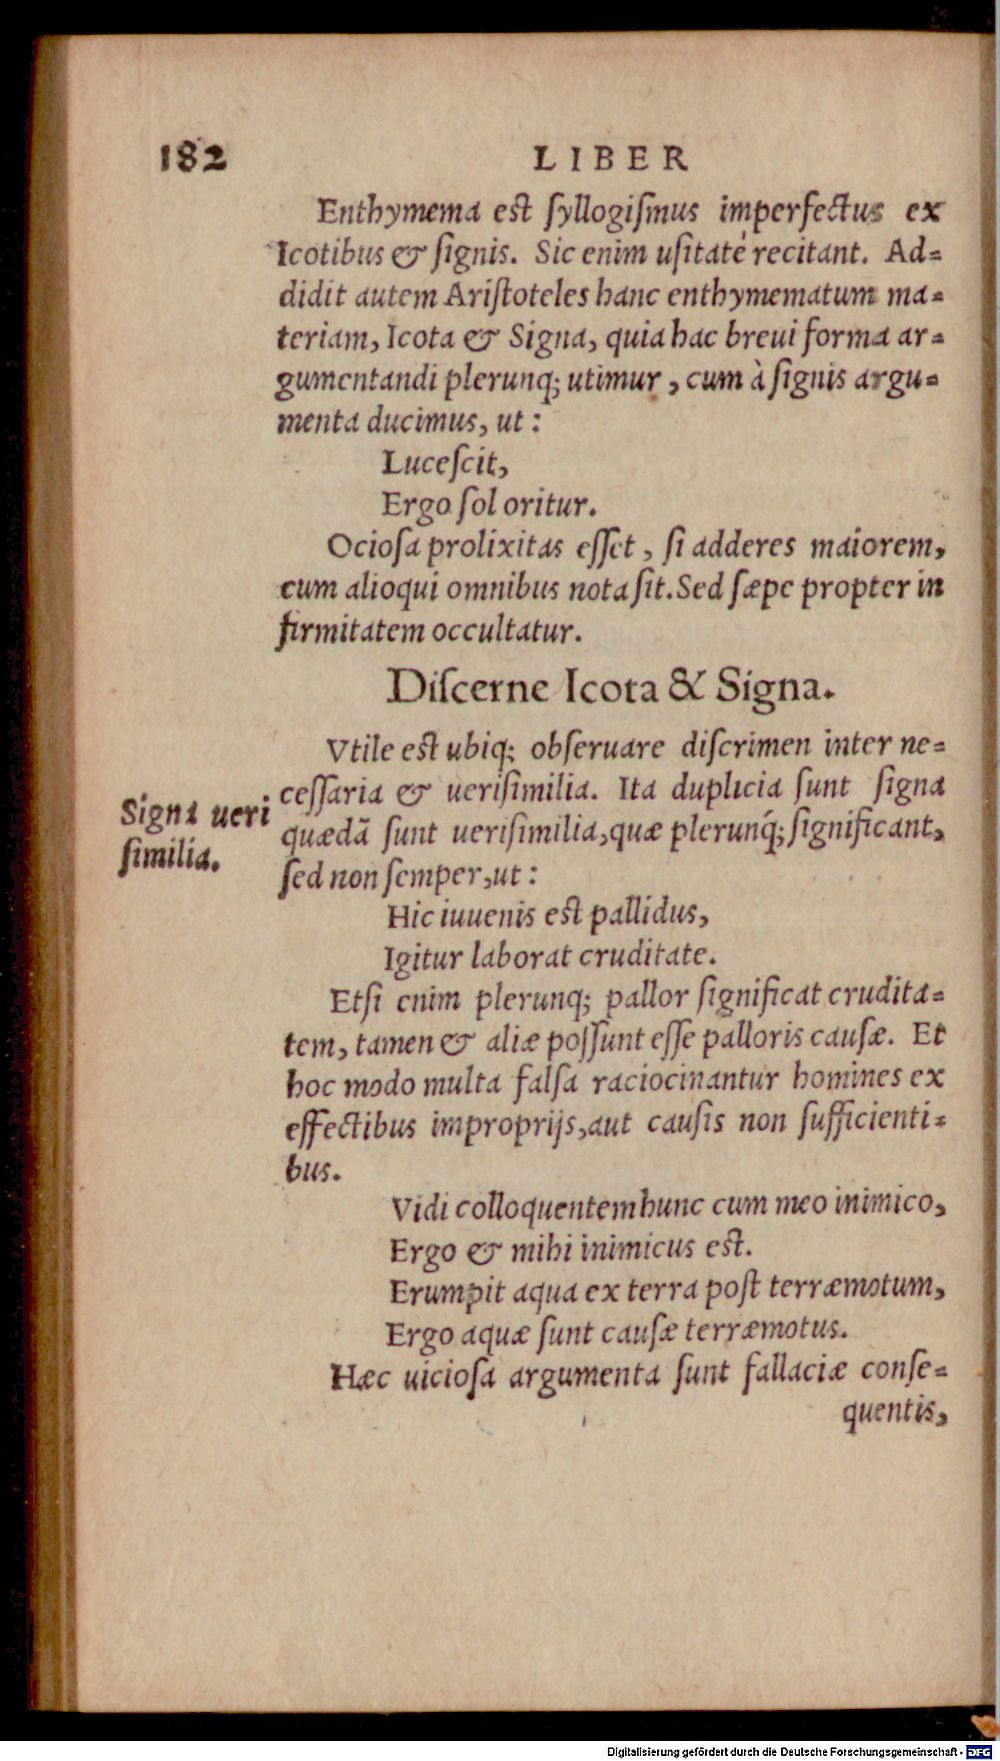 182 LIBER
Enthymema est ſyllogiſmus imperfectus ex
Icotibus & ſignis. Sic enim uſitatè recitant. Ad-
didit autem Ariſtoteles hanc enthymematum ma-
teriam, Icota & Signa, quia hac breui forma ar-
gumentandi plerunq; utimur, cum à ſignis argu-
menta ducimus, ut:
Luceſcit,
Ergo ſol oritur.
Ocioſa prolixitas eſſet, ſi adderes maiorem,
cum alioqui omnibus nota ſit. Sed ſæpe propter in
firmitatem occultatur.
Diſcerne Icota & Signa.
Vtile est ubiq; obſeruare diſcrimen inter ne-
ceſſaria & ueriſimilia. Ita duplicia ſunt ſigna
Signa ueri
ſimilia.
quædã ſunt ueriſimilia, quæ plerunq́; ſignificant,
ſed non ſemper, ut:
Hic iuuenis est pallidus,
Igitur laborat cruditate.
Etſi enim plerunq; pallor ſignificat crudita-
tem, tamen & aliæ poſſunt eſſe palloris cauſæ. Et
hoc modo multa falſa raciocinantur homines ex
effectibus improprijs, aut cauſis non ſufficienti-
bus.
Vidi colloquentem hunc cum meo inimico,
Ergo & mihi inimicus est.
Erumpit aqua ex terra poſt terræmotum,
Ergo aquæ ſunt cauſæ terræmotus.
Hæc uicioſa argumenta ſunt fallaciæ conſe-
quentis,
Digitalisierung gefördert durch die Deutsche Forschungsgemeinschaft - DFG